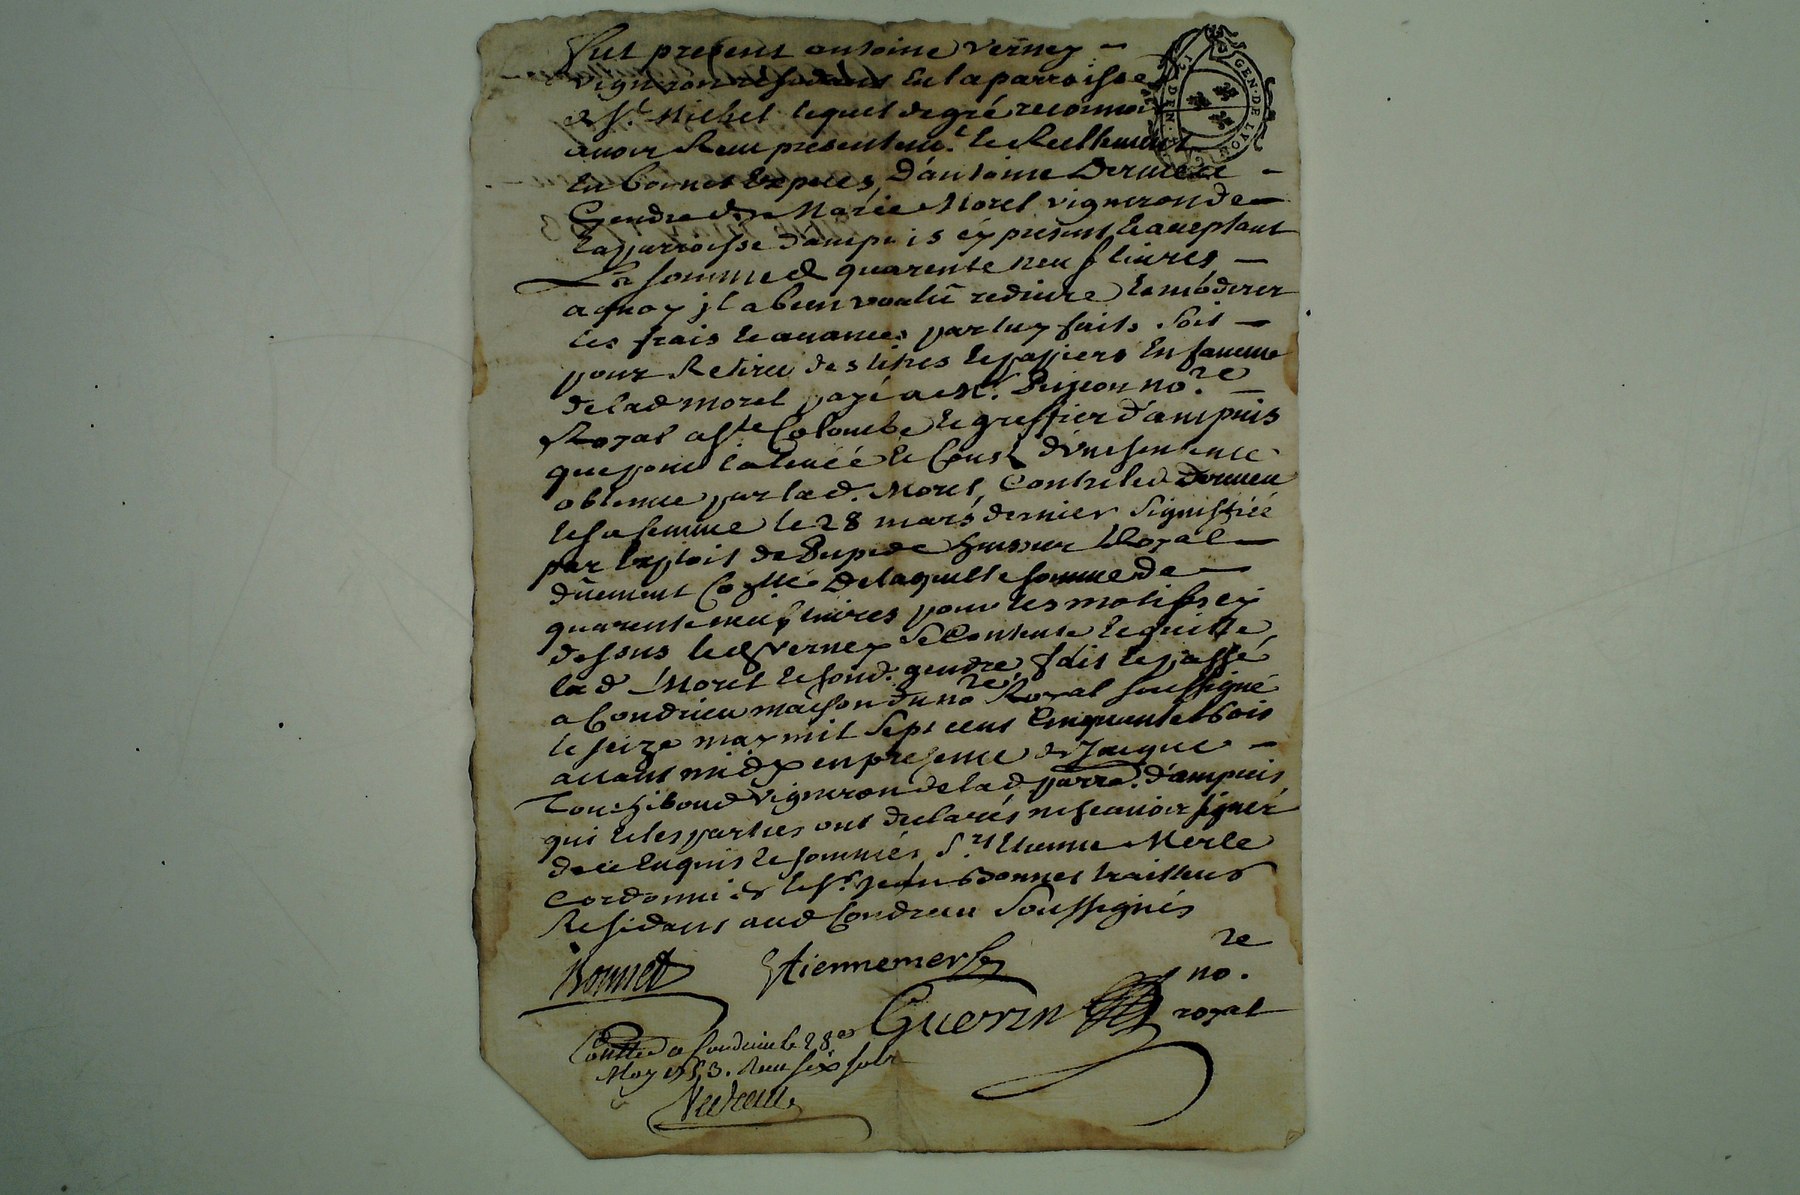 Fut present antoine Verney -
vigneron résidant En la parroisse
de St. Michel lequel de gré reconnoi
avoir Receu presentemt. le Reellement
En bonnes Especes, d'antoine Dervieu -
Gendre de Marie Morel vigneron de
la parroisse d'ampuis cy present Et acceptant
La somme de quarente neuf livres -
a quoy jl a bien voulû reduire Et modérer
les frais Et avances par luy faits Soit -
pour Retirer des titres Et papiers En faveur
de la d morel payé a Me. Pinjeon no.re -
Royal a Ste Colombe Et greffier d'ampuis
que pour la levée Et Coust d'une sentence
obtenue par la d. Morel, Contre led Dervieu
Et sa femme le 28 mars dernier Signiffiée
par Exploit de Dupede huissier Royal
dûement Coztté De laquelle somme de
quarente neuf livres pour les motifs cy
dessus led Verney Se Contente Et quitte
la d Morel Et sond. gendre, fait Et passé
a Condrieu maison du no.re Royal soussigné
le seize may mil Sept cent Cinquante trois
avant midy en presence de Jacque -
Touzibout vigneron de la d parre. d'ampuis
qui Et les parties ont declarés ne scavoir signer
de ce Enquis Et sommés, Sr. Etienne Merle
Cordonnier Et Sr. Jean Bonnet traitteur
Residans aud Condrieu Soussignés
Bonnet Etiennemerle
re
no.
Guerin royal
Contté a Condrieu le 28e
May 1753. Receu six sols
GEN. DE LYON